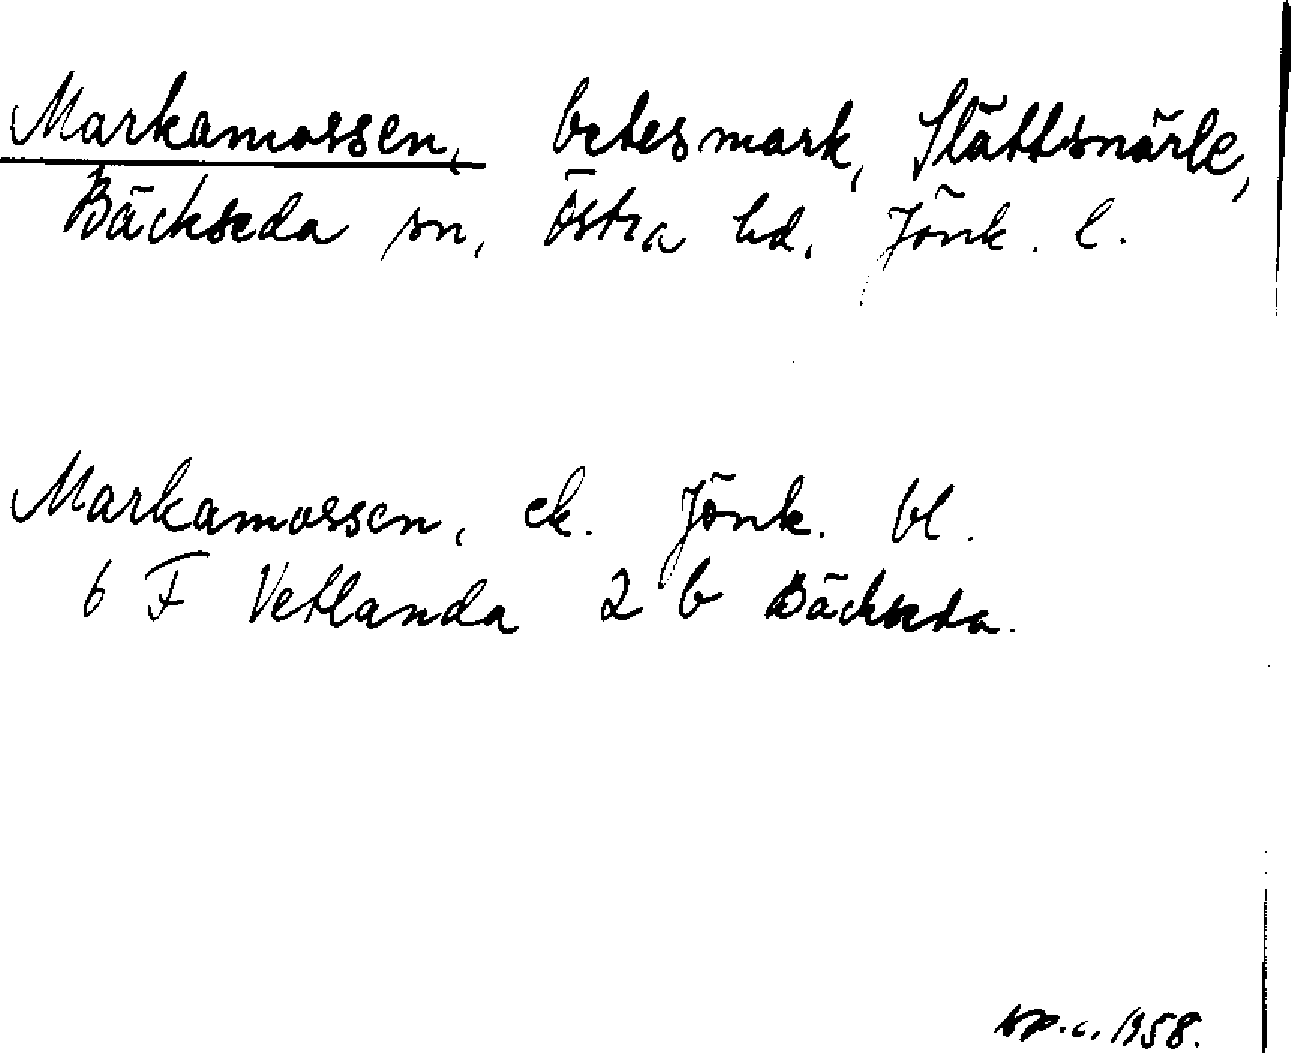 Markamossen, betesmark, Slättsnärle,
Bäckseda sn, Östra hd. Jönk. l.
Markamossen, ek. Jönk. bl.
6 F Vetlanda 2 b Bäckseda.
1958.